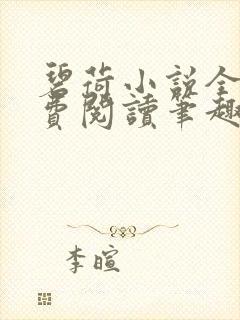 碧荷小説全
費閱讀筆趣
李暄